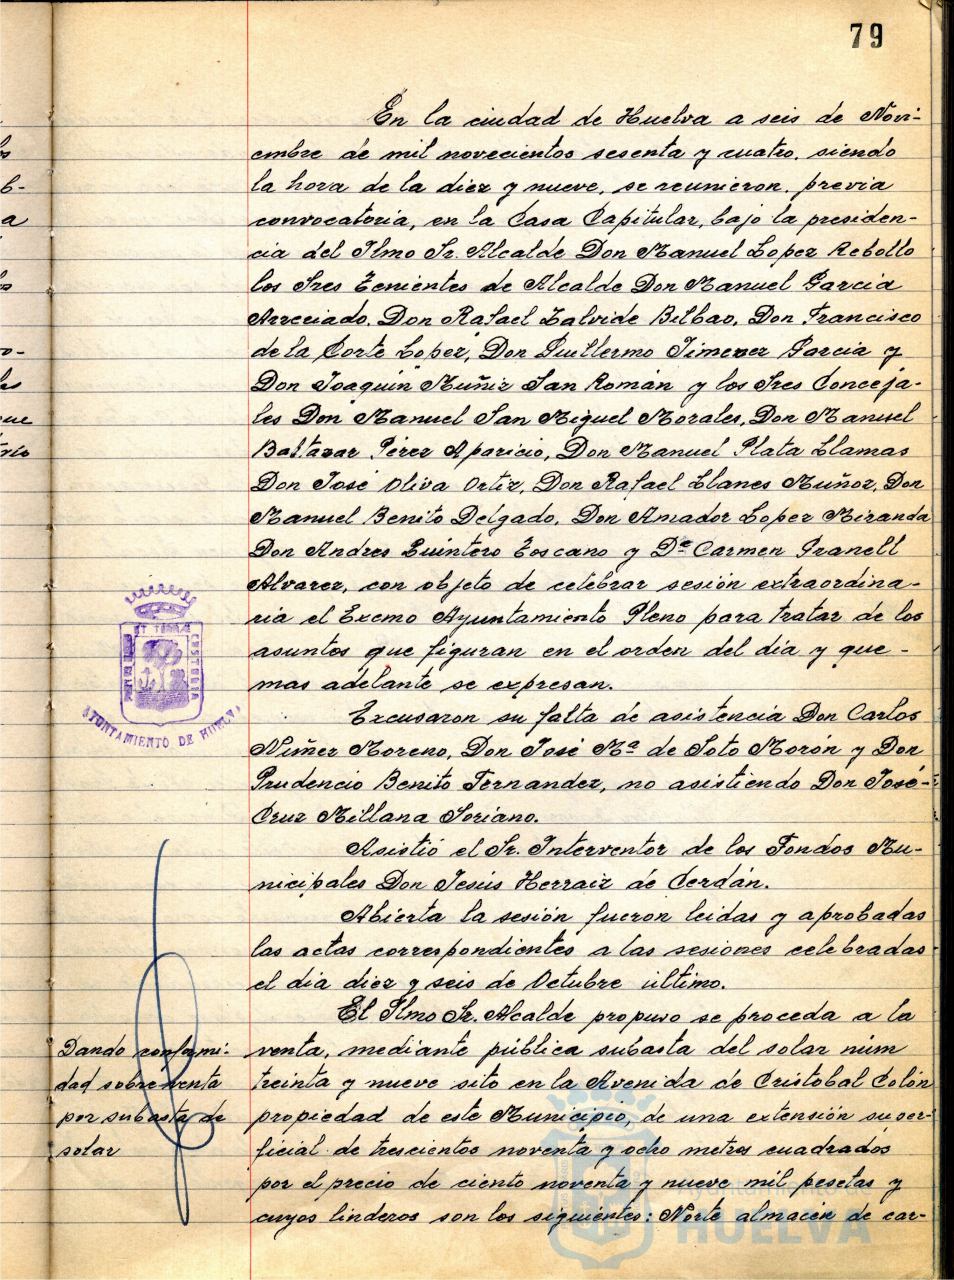 79
En la ciudad de Huelva a seis de Novi-
embre de mil novecientos sesenta y cuatro, siendo
la hora de la diez y nueve, se reunieron, previa
convocatoria, en la Casa Capitular, bajo la presiden-
cia del Ilmo Sr. Alcalde Don Manuel Lopez Rebollo
los Sres Tenientes de Alcalde Don Manuel Garcia
Arreciado, Don Rafael Zalvide Bilbao, Don Francisco
de la Corte Lopez, Don Guillermo Jimenez Garcia y
Don Joaquin Muñiz San Román y los Sres Conceja-
les Don Manuel San Miguel Morales, Don Manuel
Baltazar Pérez Aparicio, Don Manuel Plata Llamas
Don José Oliva Ortiz, Don Rafael Llanes Muñoz, Don
Manuel Benito Delgado, Don Amador Lopez Miranda
Don Andres Quintero Toscano y Dª Carmen Granell
Alvarez, con objeto de celebrar sesión extraordina-
ria el Excmo Ayuntamiento Pleno para tratar de los
asuntos que figuran en el orden del dia y que -
mas adelante se expresan.
Excusaron su falta de asistencia Don Carlos
Nuñez Moreno, Don José Mª de Soto Morón y Don
Prudencio Benito Fernandez, no asistiendo Don José-
Cruz Millana Soriano.
Asistió el Sr. Interventor de los Fondos Mu-
nicipales Don Jesús Herraiz de Cerdán.
Abierta la sesión fueron leidas y aprobadas
las actas correspondientes a las sesiones celebradas
el dia diez y seis de Octubre último.
El Ilmo Sr. Alcalde propuso se proceda a la
venta, mediante pública subasta del solar núm
treinta y nueve sito en la Avenida de Cristobal Colón
propiedad de este Municipio, de una extensión super-
ficial de trescientos noventa y ocho metros cuadrados
por el precio de ciento noventa y nueve mil pesetas y
cuyos linderos son los siguientes: Norte almacén de car-
Dando conformi-
dad sobre venta
por subasta de
solar
AYUNTAMIENTO DE HUELVA
CUSTODIA
Ayuntamiento de
HUELVA